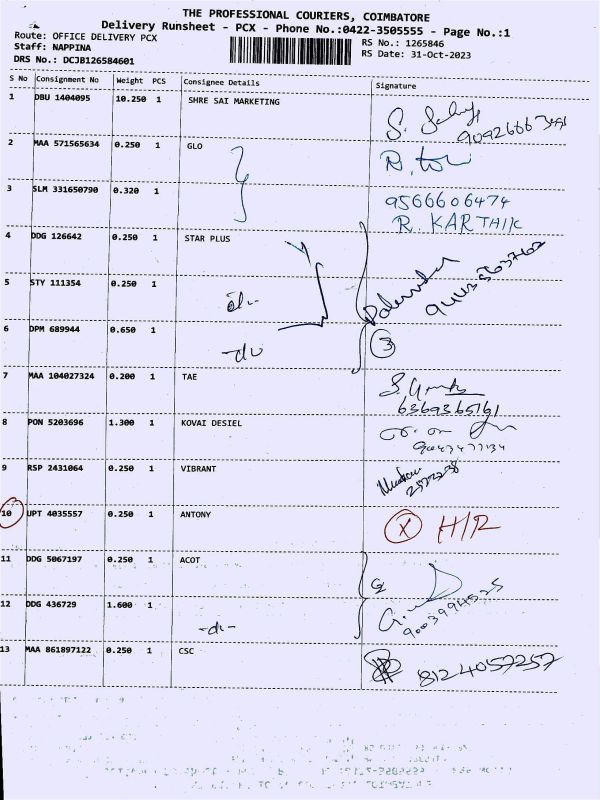 THE PROFESSIONAL COURIERS, COIMBATORE
Delivery Runsheet - PCX - Phone No.:0422-3505555 - Page No.:1
Route: OFFICE DELIVERY PCX
RS No.: 1265846
Staff: NAPPINA
RS Date: 31-Oct-2023
DRS No.: DCJB126584601
S No Consignment No Weight PCS Consignee Details Signature
1 DBU 1404095 10.250 1 SHRE SAI MARKETING
2 MAA 571565634 0.250 1 GLO
3 SLM 331650790 0.320 1 9566606474
R. KARTHIK
4 DDG 126642 0.250 1 STAR PLUS
5 STY 111354 0.250 1
6 DPM 689944 0.650 1 -du 3
7 MAA 104027324 0.200 1 TAE
6369365161
8 PON 5203696 1.300 1 KOVAI DESIEL
9 RSP 2431064 0.250 1 VIBRANT
10 UPT 4035557 0.250 1 ANTONY X H/R
11 DDG 5067197 0.250 1 ACOT
12 DDG 436729 1.600 1 -du-
9003994525
13 MAA 861897122 0.250 1 CSC 8124057257